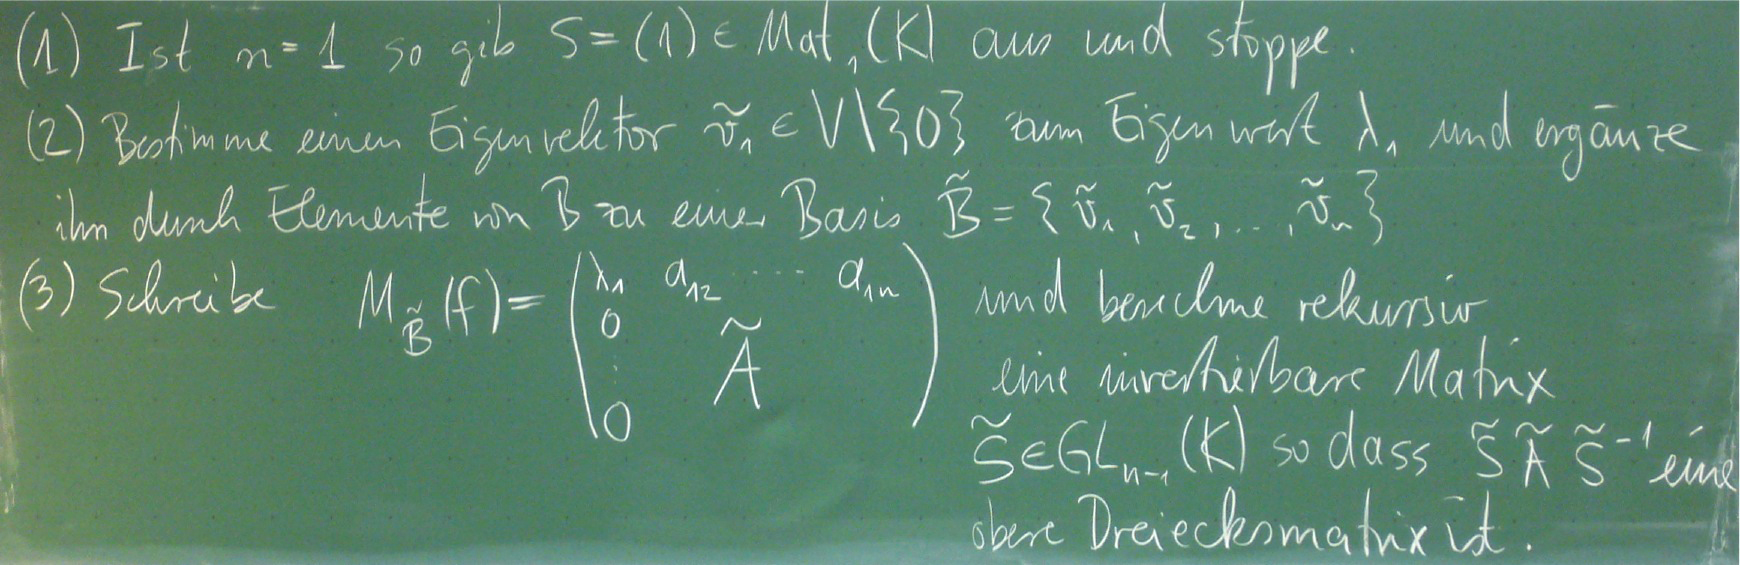 (1) Ist n = 1 so gib S = (1) ∈ Mat₁(K) aus und stoppe.
(2) Bestimme einen Eigenvektor ṽ₁ ∈ V\{0} zum Eigenwert λ₁ und ergänze
ihn durch Elemente von B zu einer Basis B̃ = {ṽ₁, ṽ₂, ..., ṽₙ}
(3) Schreibe M_B̃(f) = ( λ₁ a₁₂ ..... a₁ₙ ) und berechne rekursiv
0
⋮ Ã eine invertierbare Matrix
0 S̃ ∈ GLₙ₋₁(K) so dass S̃ Ã S̃⁻¹ eine
obere Dreiecksmatrix ist.